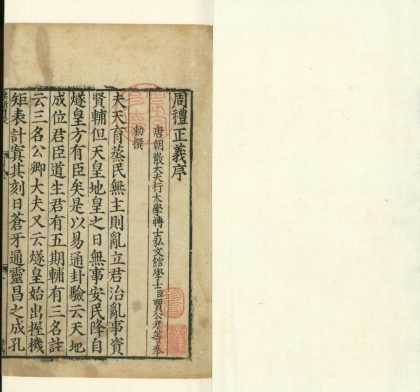 周禮正義序
唐朝散大夫行太學博士弘文館學士臣賈公彥等奉
勑撰
夫天育蒸民無主則亂立君治亂事資
賢輔但天皇地皇之日無事安民降自
燧皇方有臣矣是以易通卦驗云天地
成位君臣道生君有五期輔有三名註
云三名公卿大夫又云燧皇始出握機
矩表計寘其刻日蒼牙通靈昌之成孔